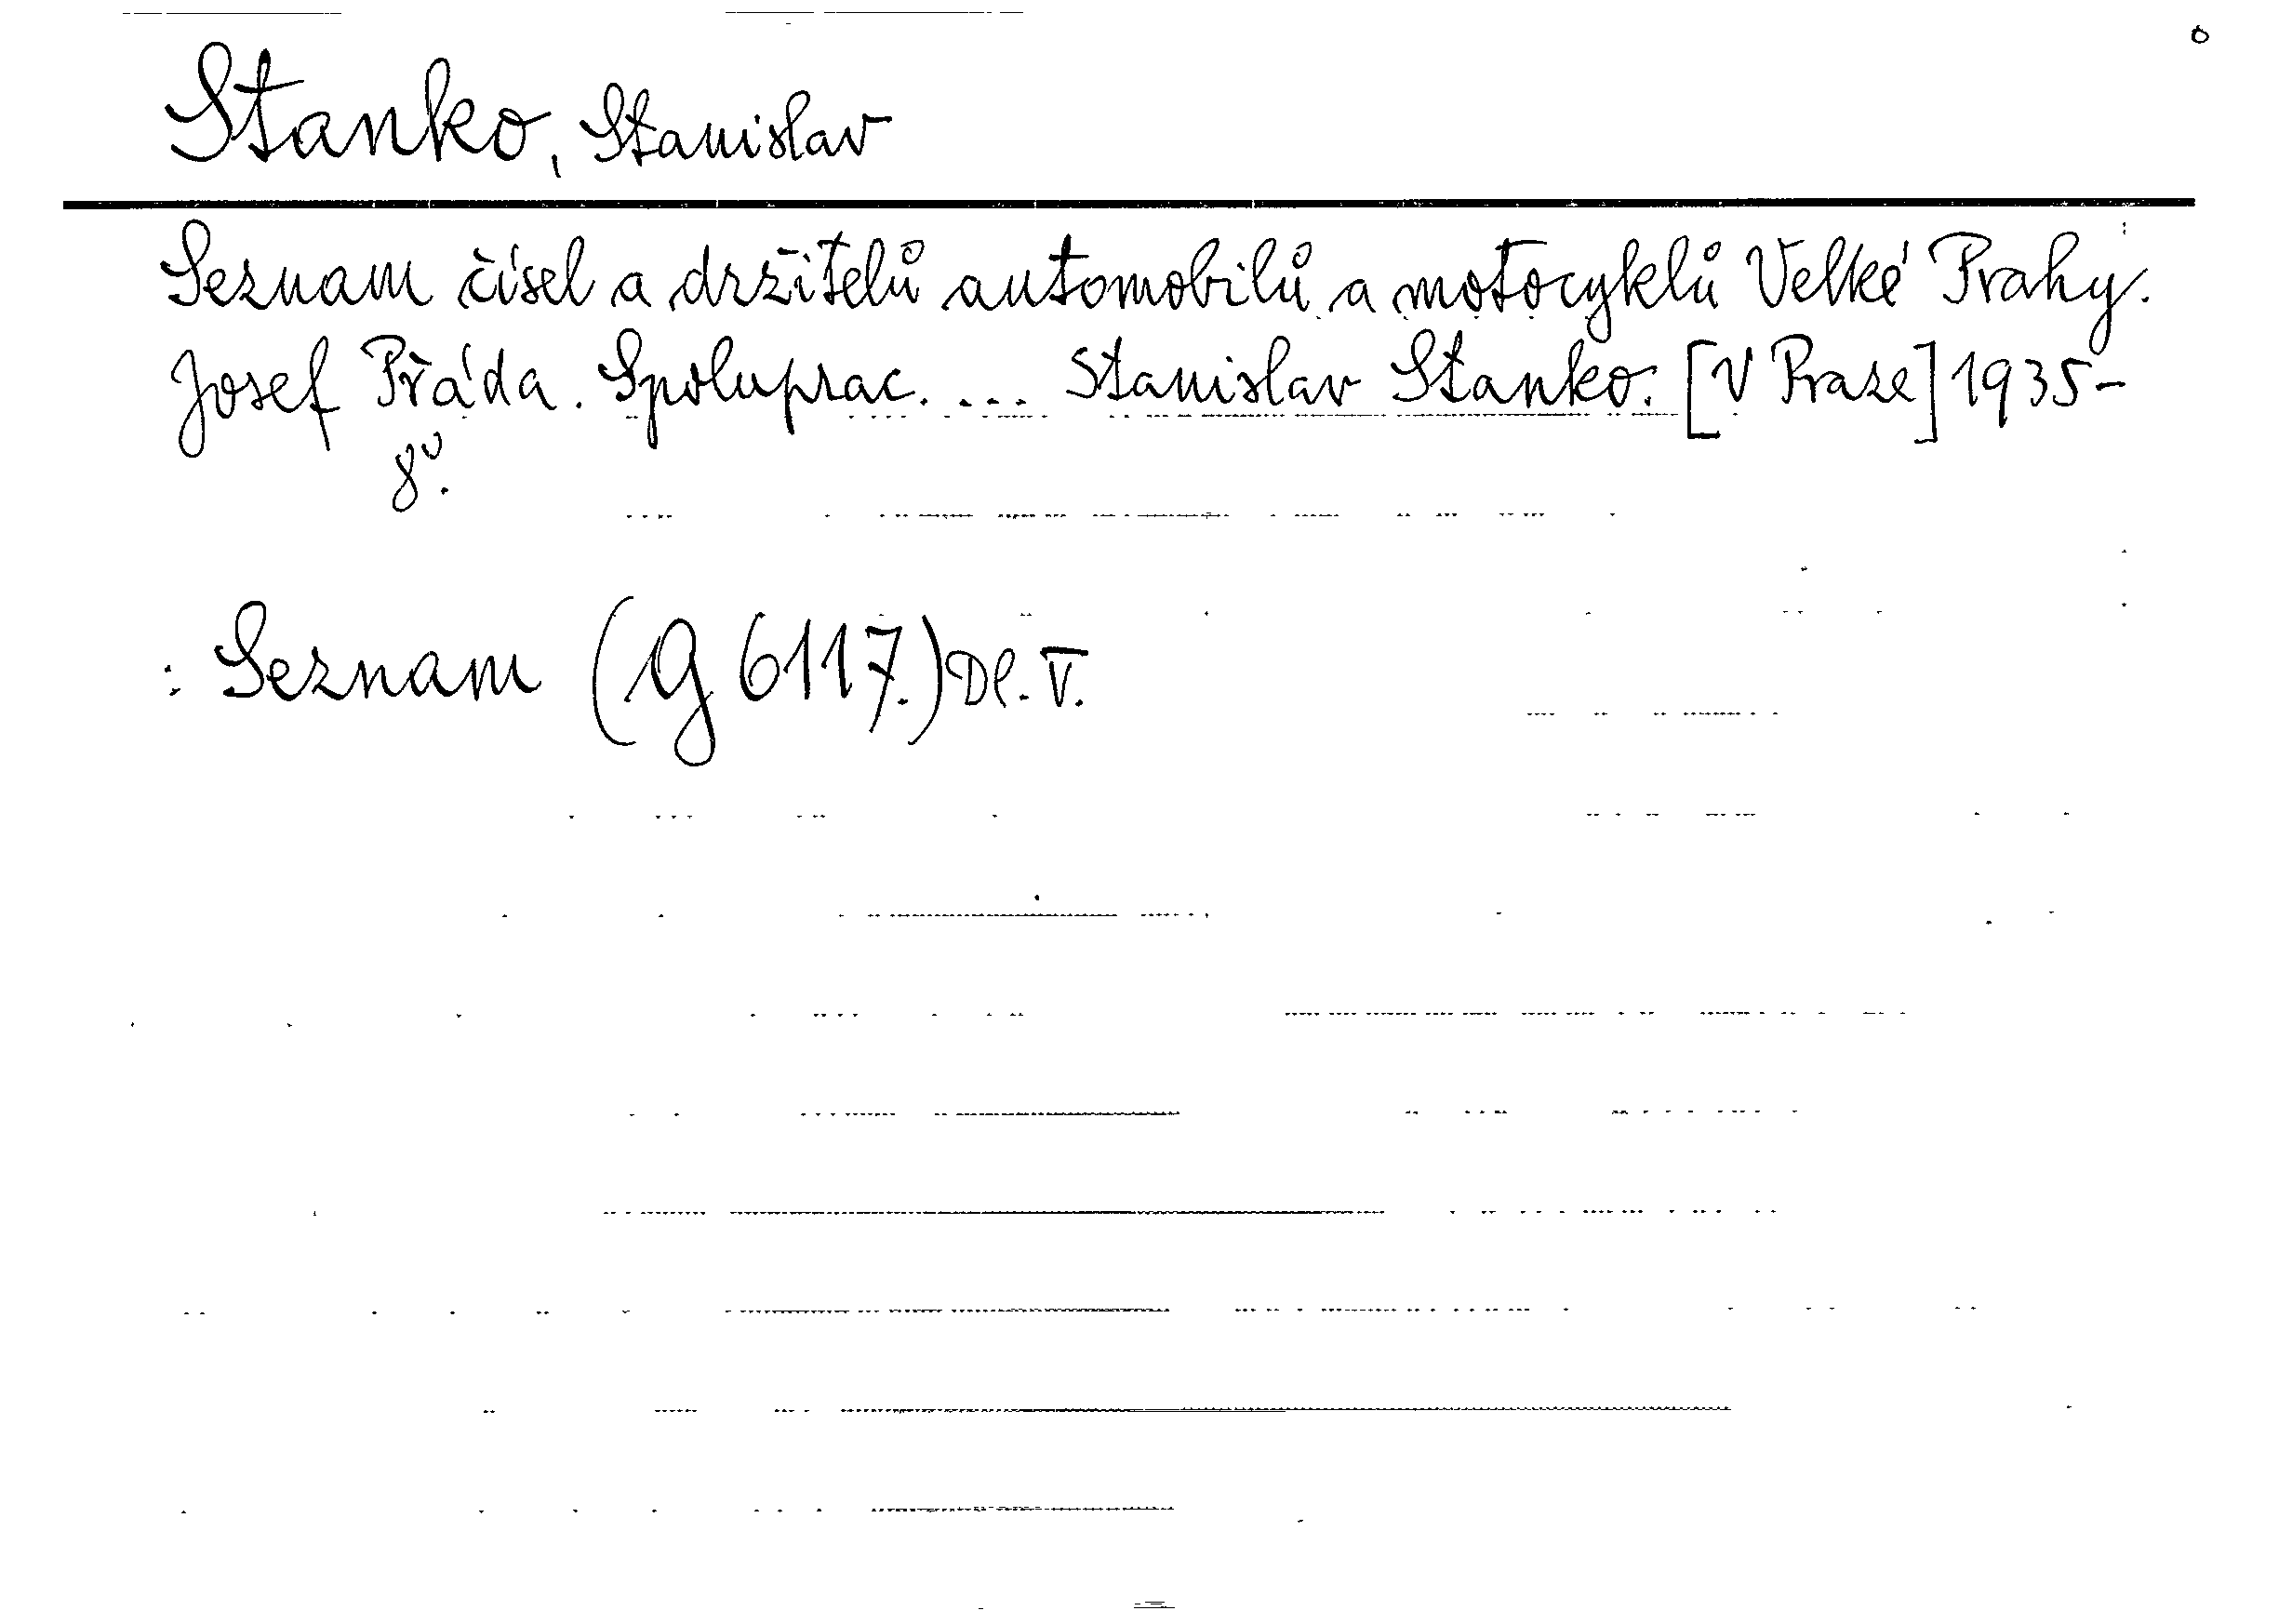 o
Stanko, Stanislav
Seznam čísel a držitelů automobilů a motocyklů Velké Prahy.
Josef Přáda. Spoluprac. ... Stanislav Stanko. [V Praze] 1935-
8°.
: Seznam (G 6117.) Dl. V.